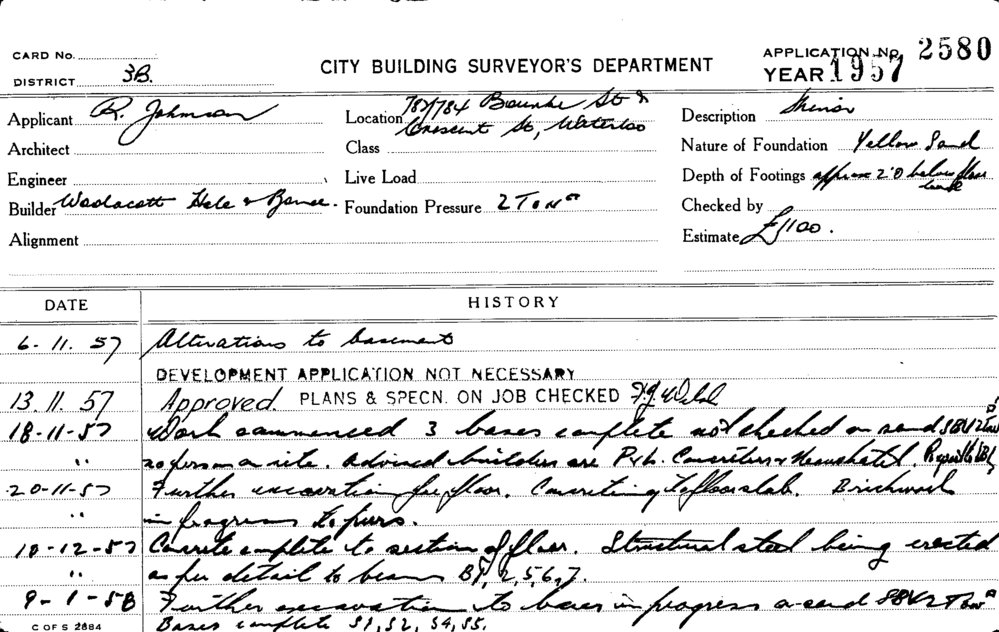 CARD No.
DISTRICT 3B.
CITY BUILDING SURVEYOR'S DEPARTMENT
APPLICATION No. 2580
YEAR 1957
Applicant R. Johnson
Location 782/784 Bourke St &
Crescent St, Waterloo
Description Minor
Architect
Class
Nature of Foundation Yellow Sand
Engineer
Live Load
Depth of Footings approx 2'0 below floor
level
Builder Woolacott Hale &
Foundation Pressure 2 Ton
Checked by
Alignment
Estimate £1100.
DATE
HISTORY
6-11.57 Alterations to basement
DEVELOPMENT APPLICATION NOT NECESSARY
13.11.57 Approved. PLANS & SPECN. ON JOB CHECKED
18-11-57 Work commenced 3 bases complete not checked on sand SBV 2 Ton
" no person on site. Advised builders are
20-11-57 Further excavation for floor. Concreting to floor slab. Brickwork
" in progress to piers.
18-12-57 Concrete complete to section of floor. Structural steel being erected
" as per detail to beams B1, 2, 5, 6, 7.
9-1-58 Further excavation to bases in progress on sand SBV 2 Ton
Bases complete S1, S2, S4, S5.
C OF S 2684